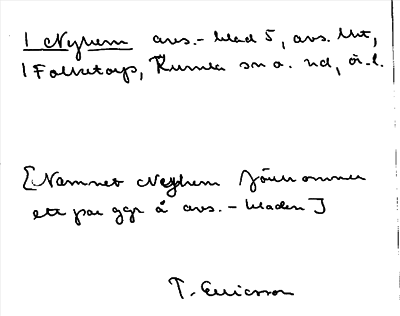 1 Nyhem avs.-blad 5, avs. Mt,
1 Folketorp, Kumla sn o. hd, ö.l.
[Namnet Nyhem förekommer
ett par ggr å avs.-bladen]
T. Ericsson